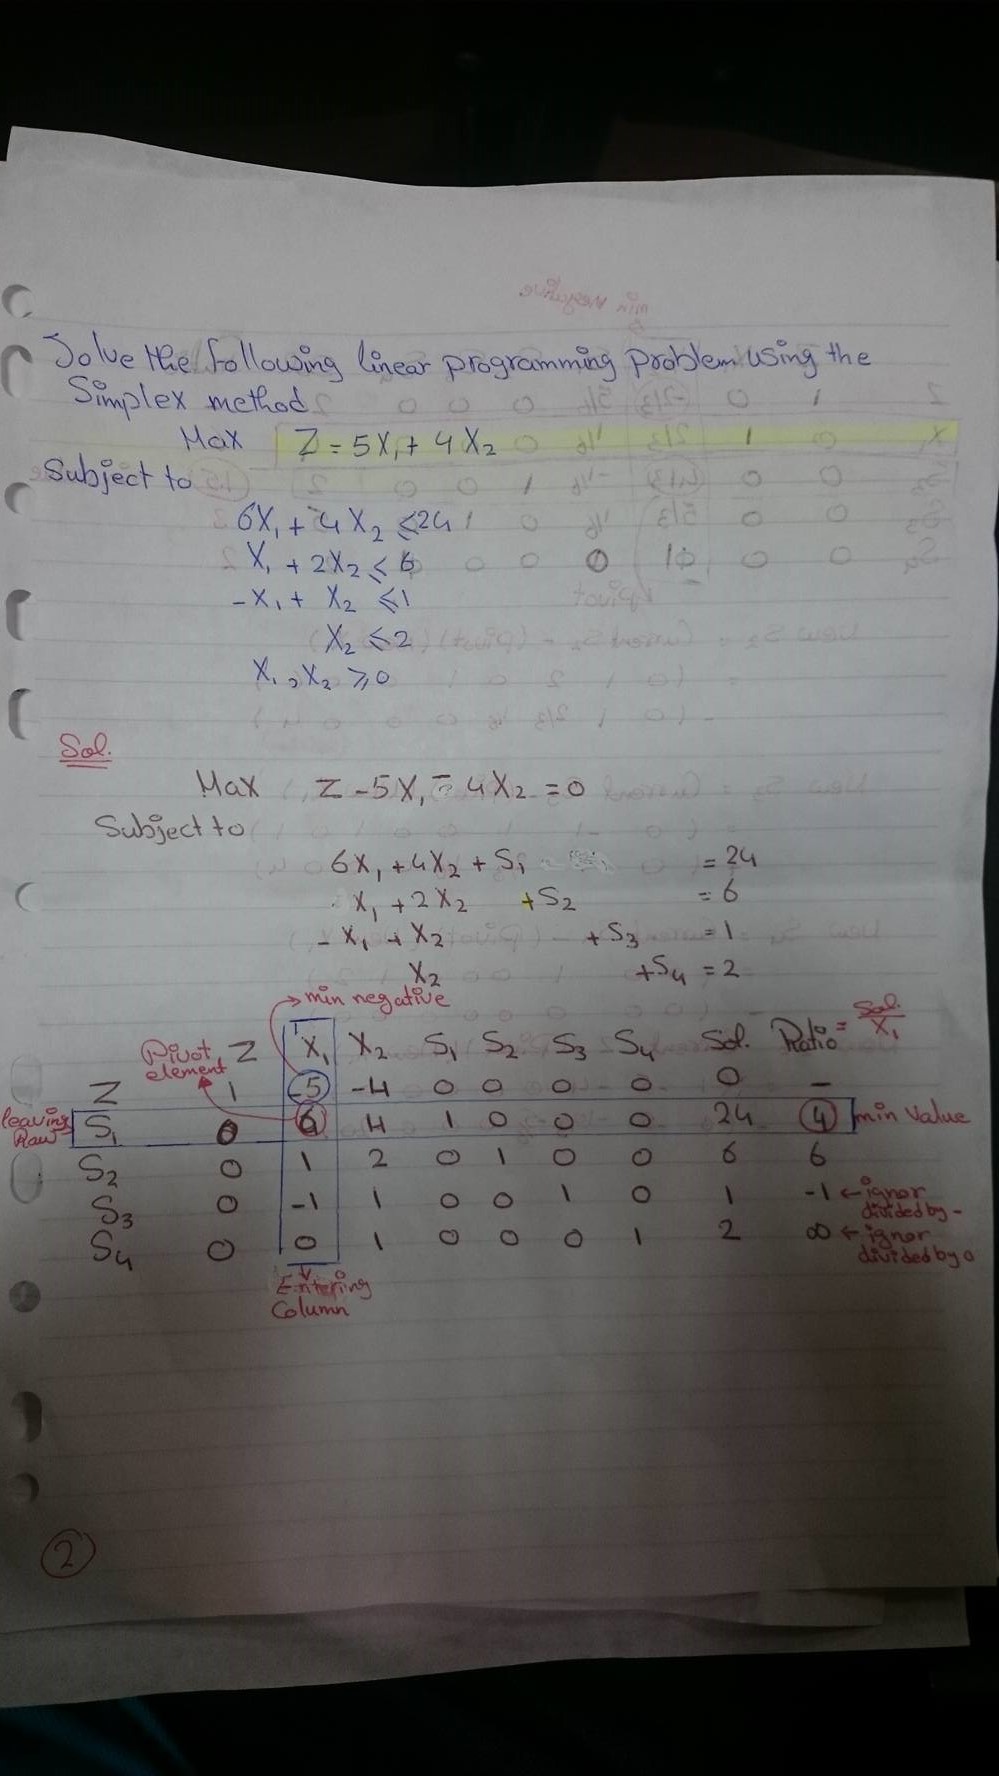 Solve the following linear programming problem using the
Simplex method
Max Z = 5X₁ + 4X₂
Subject to
6X₁ + 4X₂ ≤ 24
X₁ + 2X₂ ≤ 6
-X₁ + X₂ ≤ 1
X₂ ≤ 2
X₁, X₂ ≥ 0
Sol.
Max Z - 5X₁ - 4X₂ = 0
Subject to
6X₁ + 4X₂ + S₁ = 24
X₁ + 2X₂ + S₂ = 6
- X₁ + X₂ + S₃ = 1
X₂ + S₄ = 2
min negative
Pivot element
Z X₁ X₂ S₁ S₂ S₃ S₄ Sol. Ratio = Sol./X₁
Z 1 -5 -4 0 0 0 0 0 -
leaving Raw S₁ 0 6 4 1 0 0 0 24 4 min value
S₂ 0 1 2 0 1 0 0 6 6
S₃ 0 -1 1 0 0 1 0 1 -1 ← ignor divided by -
S₄ 0 0 1 0 0 0 1 2 ∞ ← ignor divided by 0
Entering
Column
2